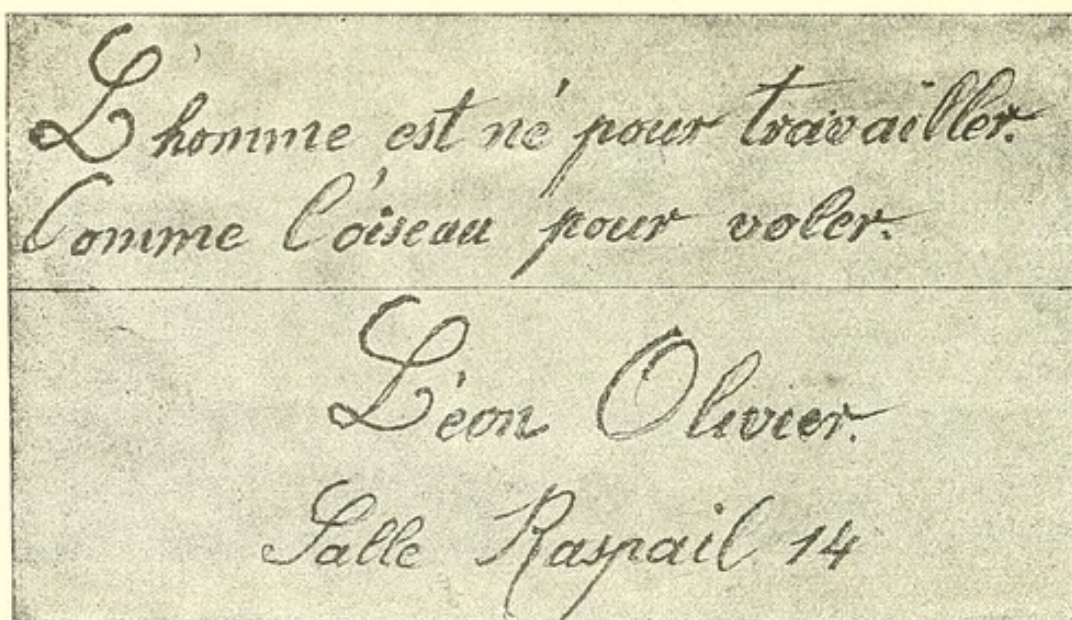 L'homme est né pour travailler.
Comme l'oiseau pour voler.
Léon Olivier.
Salle Raspail 14